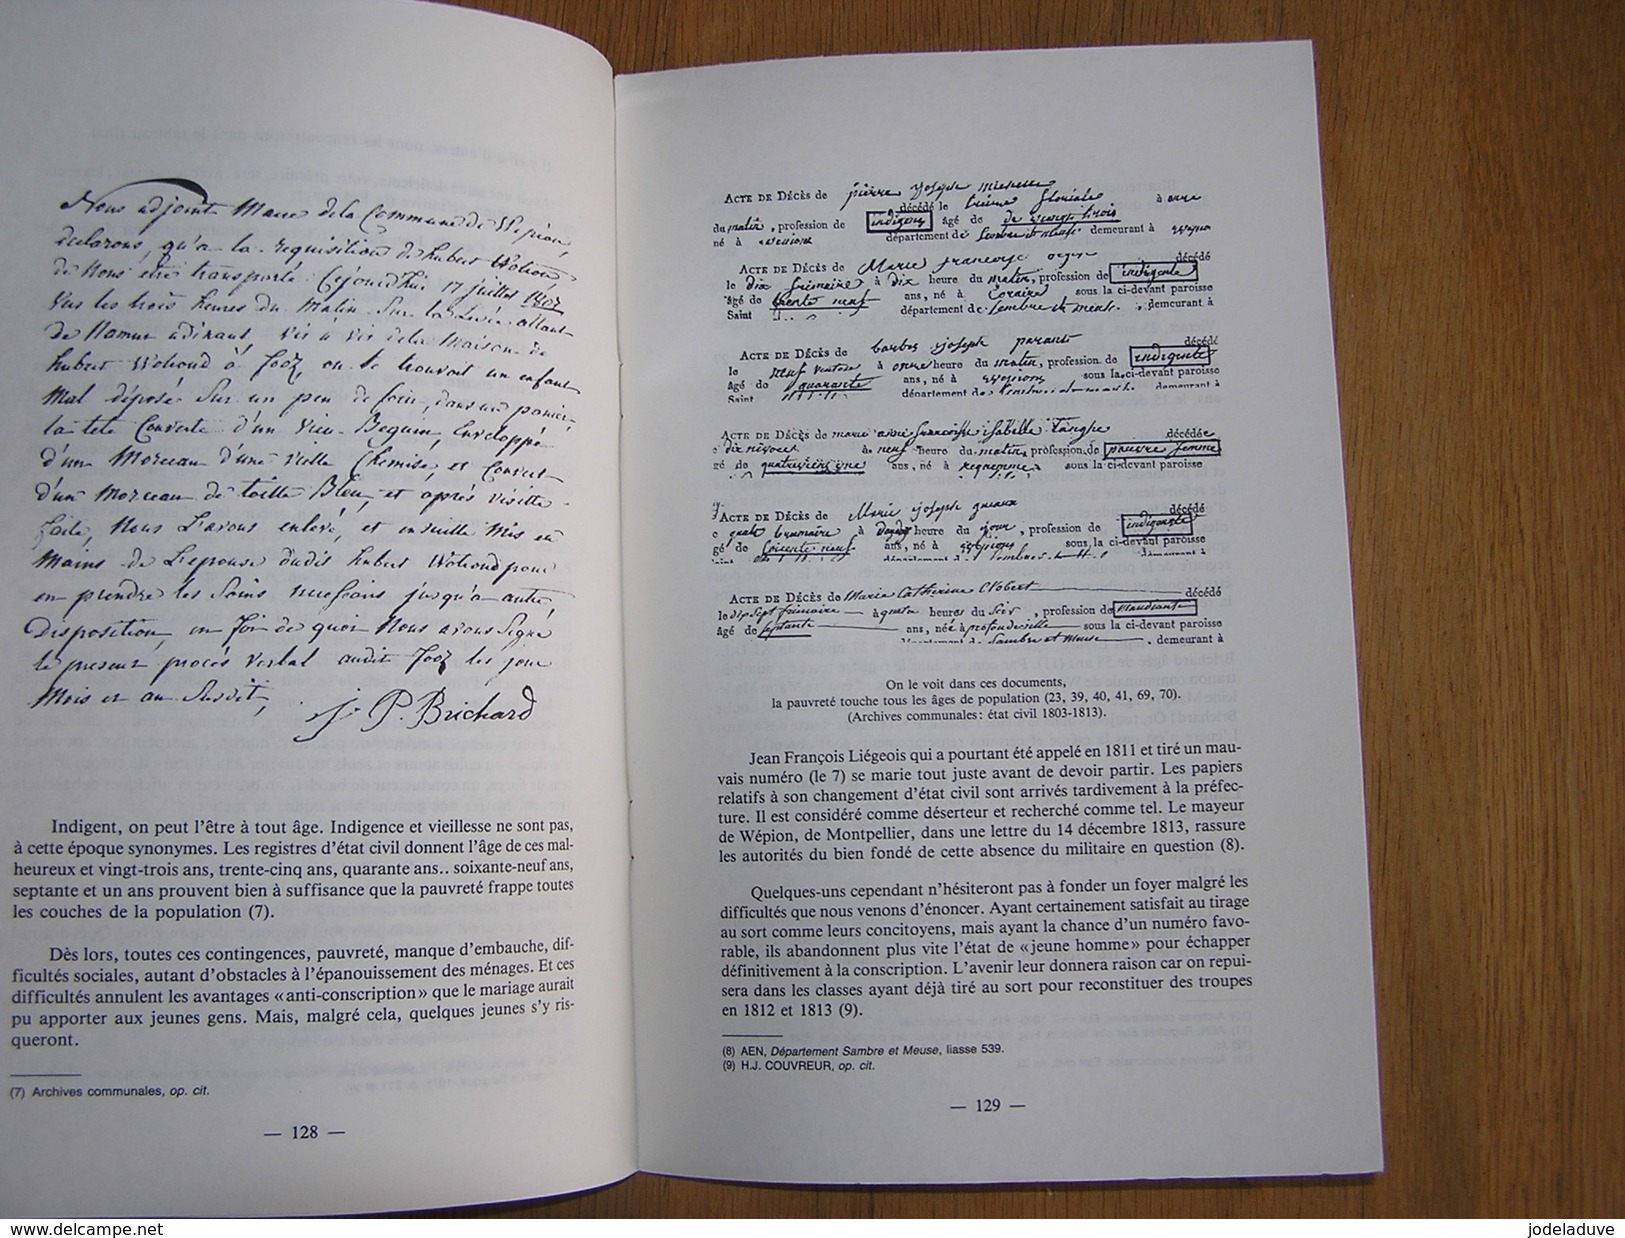 Nous adjoint Maire de la Commune de Wépion,
declarons, qu'a la requisition de hubert Wotiond
de Nous être transporté Cejourd'hui 17 juillet 1807
vers les trois heures du Matin Sur la Levée allant
de Namur a dinant, vis à vis de la Maison de
hubert Wotiond à fooz, on se trouvoit un enfant
Mal déposé Sur un peu de foin, dans un panier,
la tete Couverte d'un vieu Beguin, Enveloppé
d'un Morceau d'une vieille Chemise, et Couvert
d'un Morceau de toille Bleu, et après visitte
faite, Nous L'avons enlevé, et ensuitte Mis en
Mains de L'epouse dudit hubert Wotiond pour
en prendre les Soins jusqu'a autre
Disposition, en foi de quoi Nous avons Signé
le present procès verbal audit fooz les jour
Mois et an Susdit,
J. P. Brichard
Indigent, on peut l'être à tout âge. Indigence et vieillesse ne sont pas,
à cette époque synonymes. Les registres d'état civil donnent l'âge de ces mal-
heureux et vingt-trois ans, trente-cinq ans, quarante ans.. soixante-neuf ans,
septante et un ans prouvent bien à suffisance que la pauvreté frappe toutes
les couches de la population (7).
Dès lors, toutes ces contingences, pauvreté, manque d'embauche, dif-
ficultés sociales, autant d'obstacles à l'épanouissement des ménages. Et ces
difficultés annulent les avantages «anti-conscription» que le mariage aurait
pu apporter aux jeunes gens. Mais, malgré cela, quelques jeunes s'y ris-
queront.
(7) Archives communales, op. cit.
— 128 —
ACTE DE DÉCÈS de pierre joseph
décédé le à onze
du matin, profession de indigent âgé de de vingt trois
né à wepion département de Sembre et meuse demeurant à wepion
ACTE DE DÉCÈS de Marie francoise décédé
le dix frimaire à dix heure du matin, profession de indigente
âgé de trente neuf ans, né à sous la ci-devant paroisse
Saint département de Sembre et meuse, demeurant à
ACTE DE DÉCÈS de barbe joseph parant décédé
le neuf ventose à onze heure du matin, profession de indigente
âgé de quarante ans, né à wepion sous la ci-devant paroisse
Saint département de demeurant à
ACTE DE DÉCÈS de marie anne francoise isabelle Tanghe décédée
à neuf heure du matin, profession de pauvre femme
gé de ans, né à sous la ci-devant paroisse
ACTE DE DÉCÈS de Marie joseph décédé
quatre brumaire à heure du jour, profession de indigente
gé de soixante neuf ans, né à wepion sous la ci-devant paroisse
ACTE DE DÉCÈS de Marie Catherine décédé
le dix sept frimaire à quatre heures du soir, profession de Mandiante
âgé de septante ans, née à profondeville sous la ci-devant paroisse
département de Sambre et Meuse, demeurant à
On le voit dans ces documents,
la pauvreté touche tous les âges de population (23, 39, 40, 41, 69, 70).
(Archives communales: état civil 1803-1813).
Jean François Liégeois qui a pourtant été appelé en 1811 et tiré un mau-
vais numéro (le 7) se marie tout juste avant de devoir partir. Les papiers
relatifs à son changement d'état civil sont arrivés tardivement à la préfec-
ture. Il est considéré comme déserteur et recherché comme tel. Le mayeur
de Wépion, de Montpellier, dans une lettre du 14 décembre 1813, rassure
les autorités du bien fondé de cette absence du militaire en question (8).
Quelques-uns cependant n'hésiteront pas à fonder un foyer malgré les
difficultés que nous venons d'énoncer. Ayant certainement satisfait au tirage
au sort comme leurs concitoyens, mais ayant la chance d'un numéro favo-
rable, ils abandonnent plus vite l'état de «jeune homme» pour échapper
définitivement à la conscription. L'avenir leur donnera raison car on repui-
sera dans les classes ayant déjà tiré au sort pour reconstituer des troupes
en 1812 et 1813 (9).
(8) AEN, Département Sambre et Meuse, liasse 539.
(9) H.J. COUVREUR, op. cit.
— 129 —
www.delcampe.net
jodeladuve